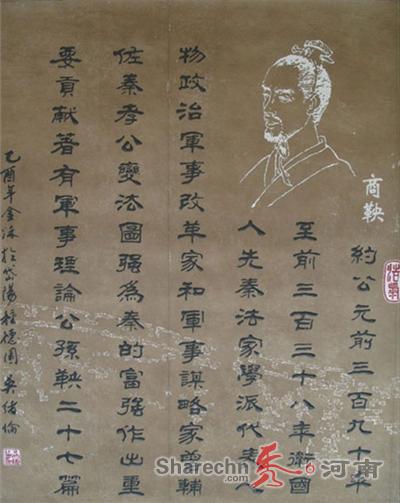 商鞅
約公元前三百九十年
至前三百三十八年衛國
人先秦法家學派代表人
物政治軍事改革家和軍事謀略家曾輔
佐秦孝公變法圖强為秦的富強作出重
要貢献著有軍事理論公孫鞅二十七篇
乙酉年金秋於岱陽種德園
Sharechn 秀 河南